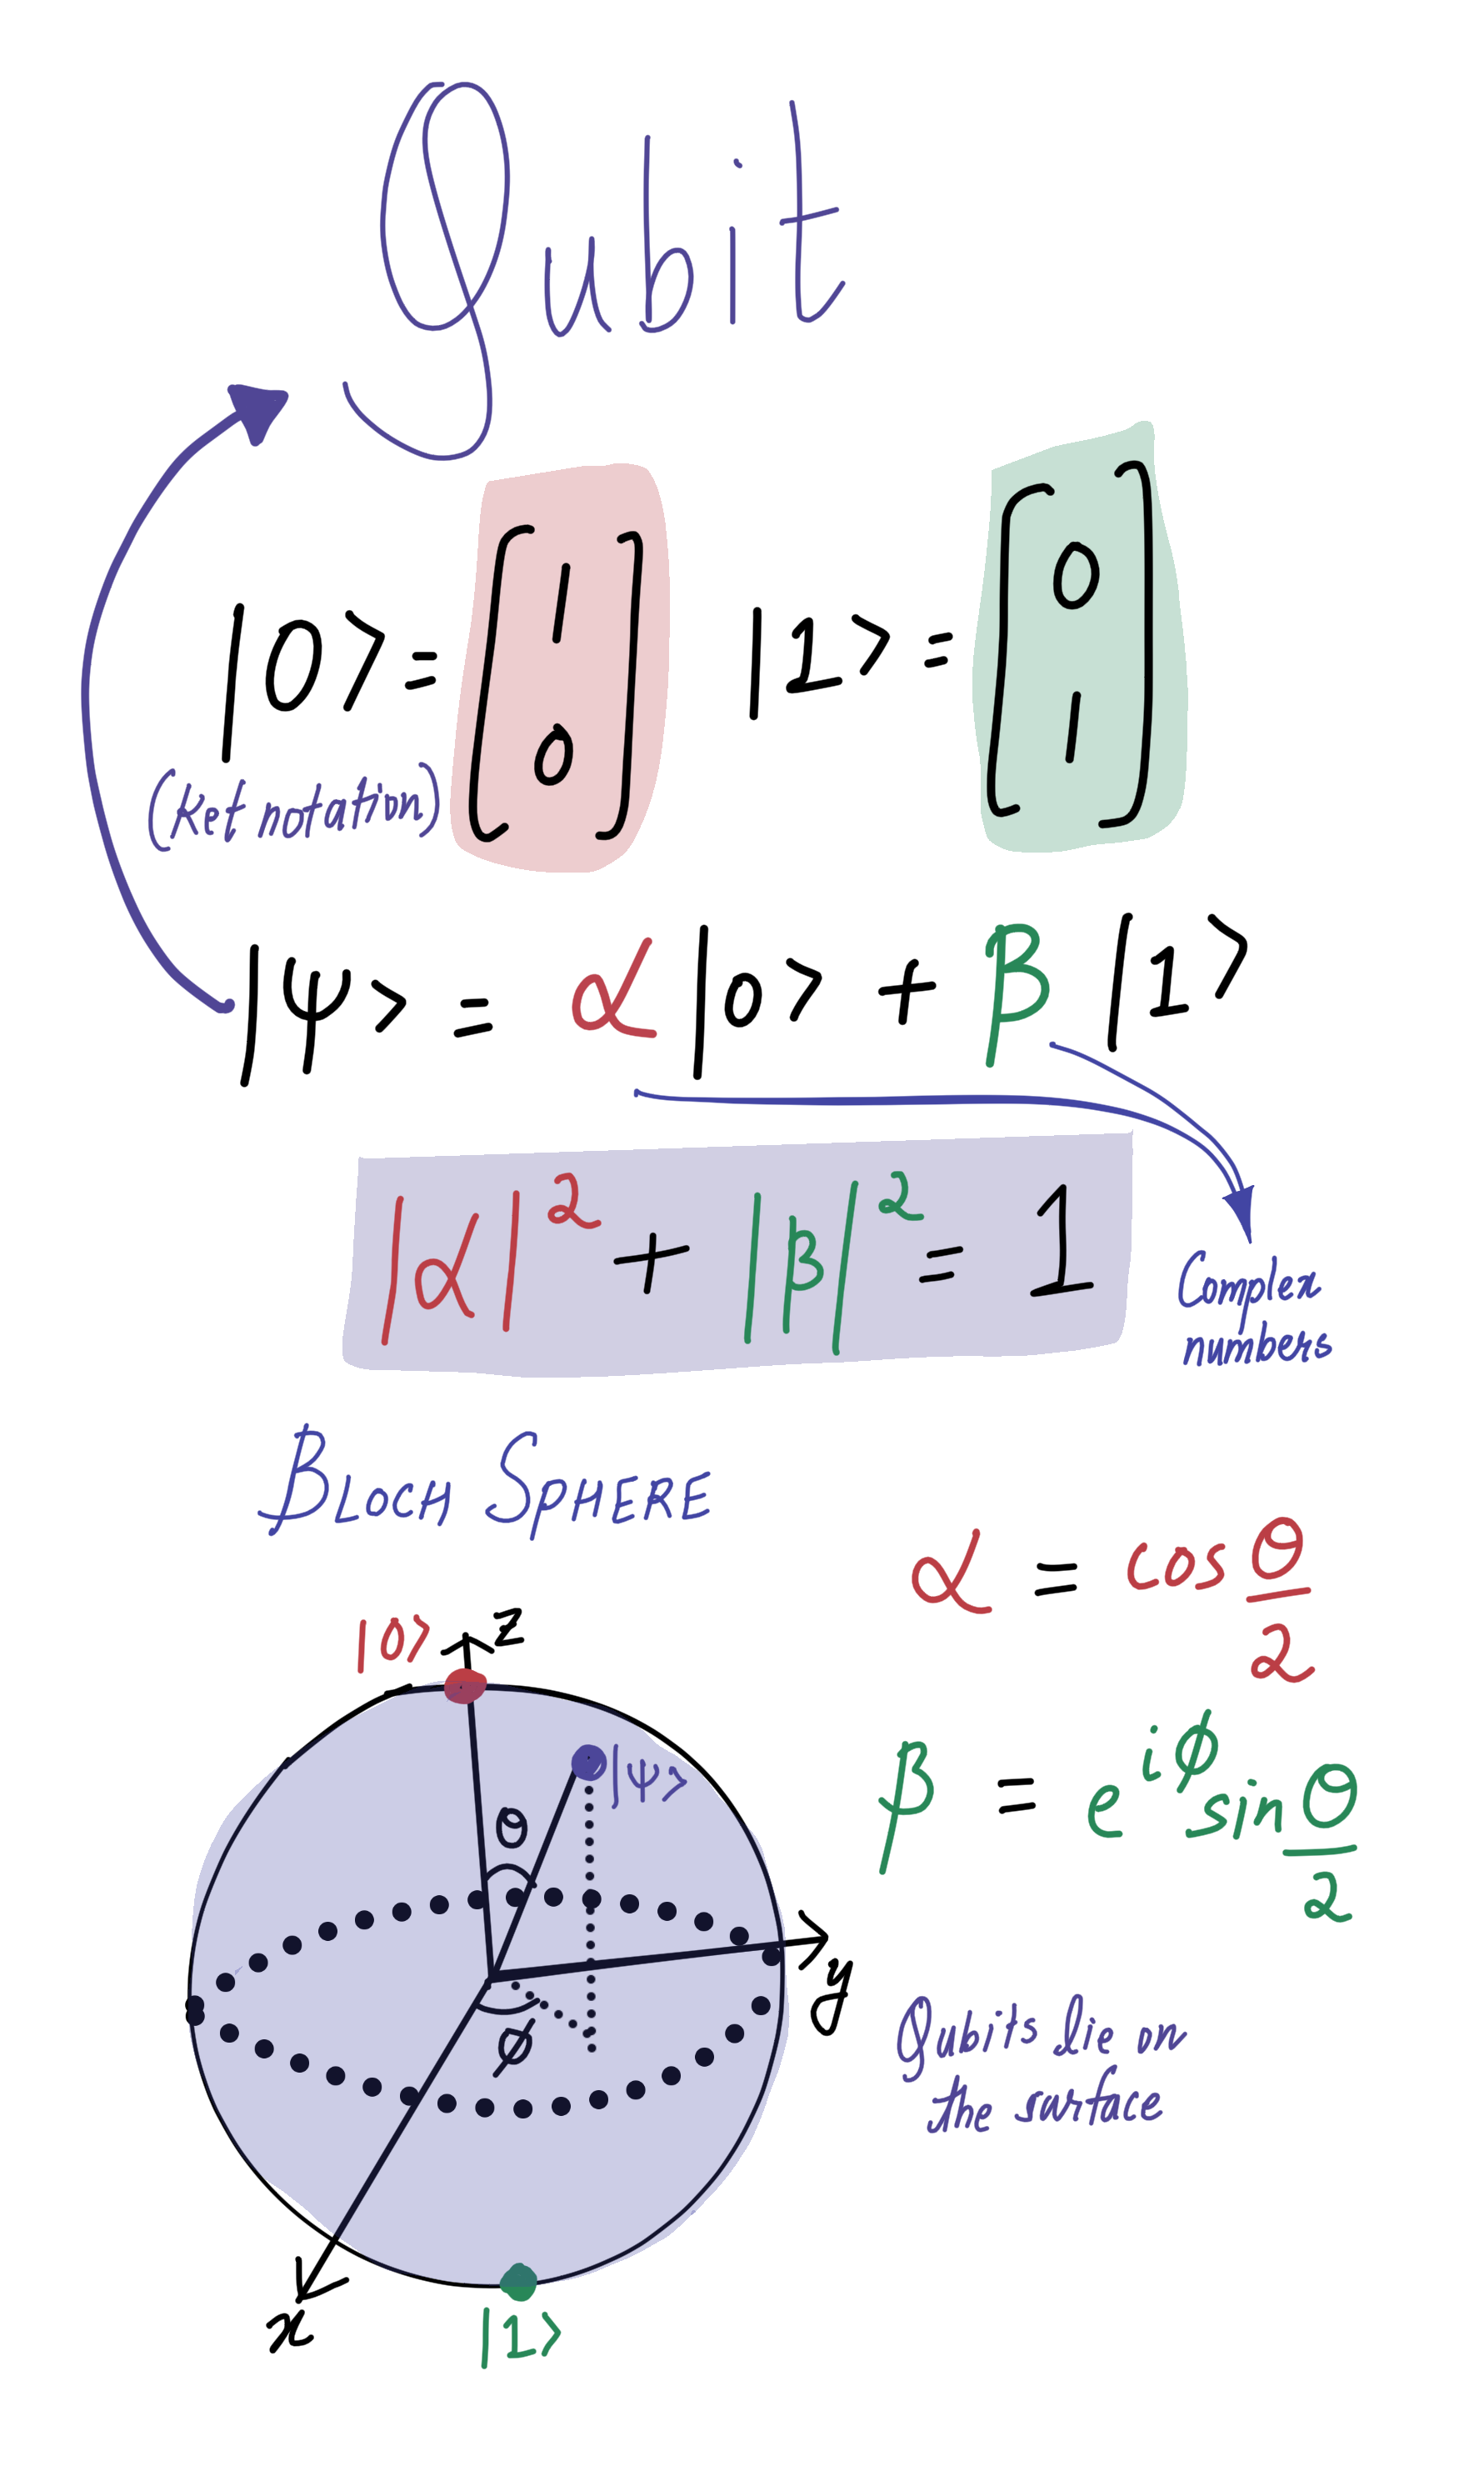 Qubit
|0> = [1 0] |1> = [0 1]
(Ket notation)
|ψ> = α|0> + β|1>
|α|² + |β|² = 1
Complex
numbers
BLOCH SPHERE
α = cos θ/2
|0> z
|ψ>
β = e^{iϕ} sin θ/2
θ
y
ϕ
Qubits lie on
the surface
x
|1>